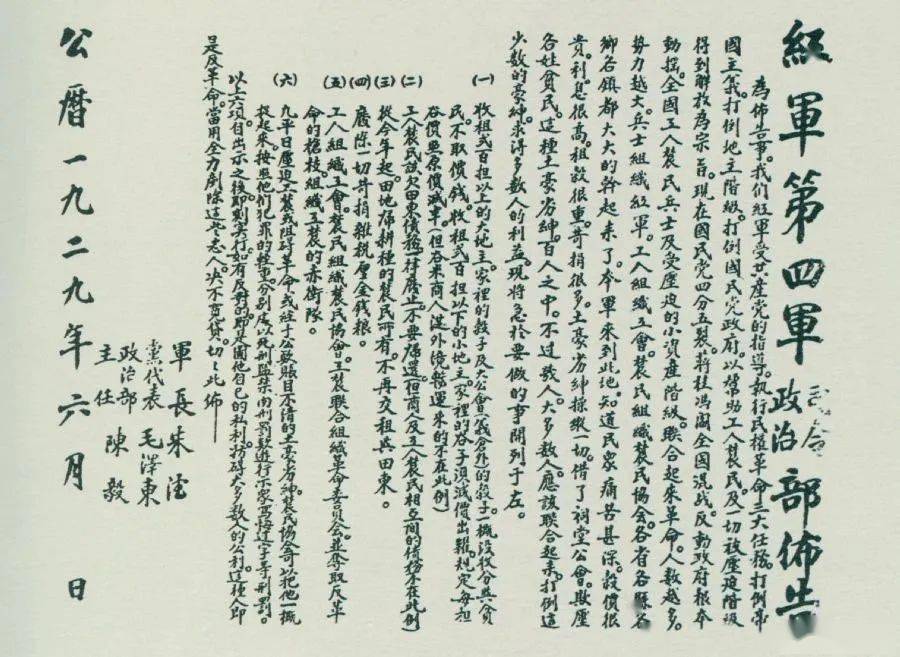 紅軍第四軍司令政治部佈告
為佈告事。我們紅軍受共產黨的指導。執行民權革命三大任務。打倒帝
國主義。打倒地主階級。打倒國民党政府。以幫助工人農民。及一切被壓迫階級
得到解放為宗旨。現在國民党四分五裂。蔣桂馮閻全國混战。反動政府根本
動搖。全國工人農民兵士及受壓迫的小資產階級。聯合起來革命。人數越多。
势力越大。兵士組織紅軍。工人組織工會。農民組織農民協会。各省各縣各
鄉各镇都大大的幹起来了。本軍来到此地。知道民衆痛苦甚深。穀價很
貴。利息很高。租穀很重。苛捐很多。土豪劣紳操縱一切。借了祠堂公會。欺壓
各姓貧民。這種土豪劣紳。百人之中。不过数人。大多數人。應該联合起来。打倒這
少数的豪紳。求得多数人的利益。現将急於要做的事開列于左。
(一) 收租弍百担以上的大地主。家裡的穀子及大公會(義倉除外)的穀子。一概没收分與貧
民。不取價钱。收租弍百担以下的小地主。家裡的谷子须減價出糶。規定每担
谷價照原價減半。(但谷米商人從外境辦運来的不在此例)
(二) 工人農民該欠田東債務。一律廢止。不要歸還。(但商人及工人農民相互間的債務不在此例)
(三) 從今年起。田地歸耕種的農民所有。不再交租與田東。
(四) 廢除一切苛捐雜稅厘金钱粮。
(五) 工人組織工會。農民組織農民協會。工農联合組織革命委員会。並奪取反革
命的槍枝。組織工農的赤衛隊。
(六) 凡平日壓迫工農或阻碍革命。或經手公款賬目不清的土豪劣紳。農民協會可以把他一概
捉起来。按照他们犯罪的轻重。分别處以死刑監禁罰款遊行示家寫悔过字等刑罰。
以上六項。自出示之後即刻实行。如有反對的。即是圖他自己的私利。妨碍大多数人的公利。這種人即
是反革命。當用全力剷除這些惡人。决不寬貸。切切此佈
軍長 朱德
黨代表 毛澤東
政治部主任 陳毅
公曆一九二九年六月 日